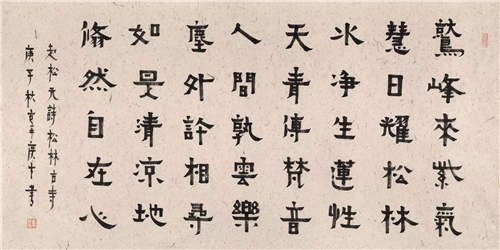 鷲峰來紫氣
慧日耀松林
水净生蓮性
天青傳梵音
人間孰雲樂
塵外許相尋
如是清凉地
翛然自在心
赵松元詩松林古寺
庚子秋書